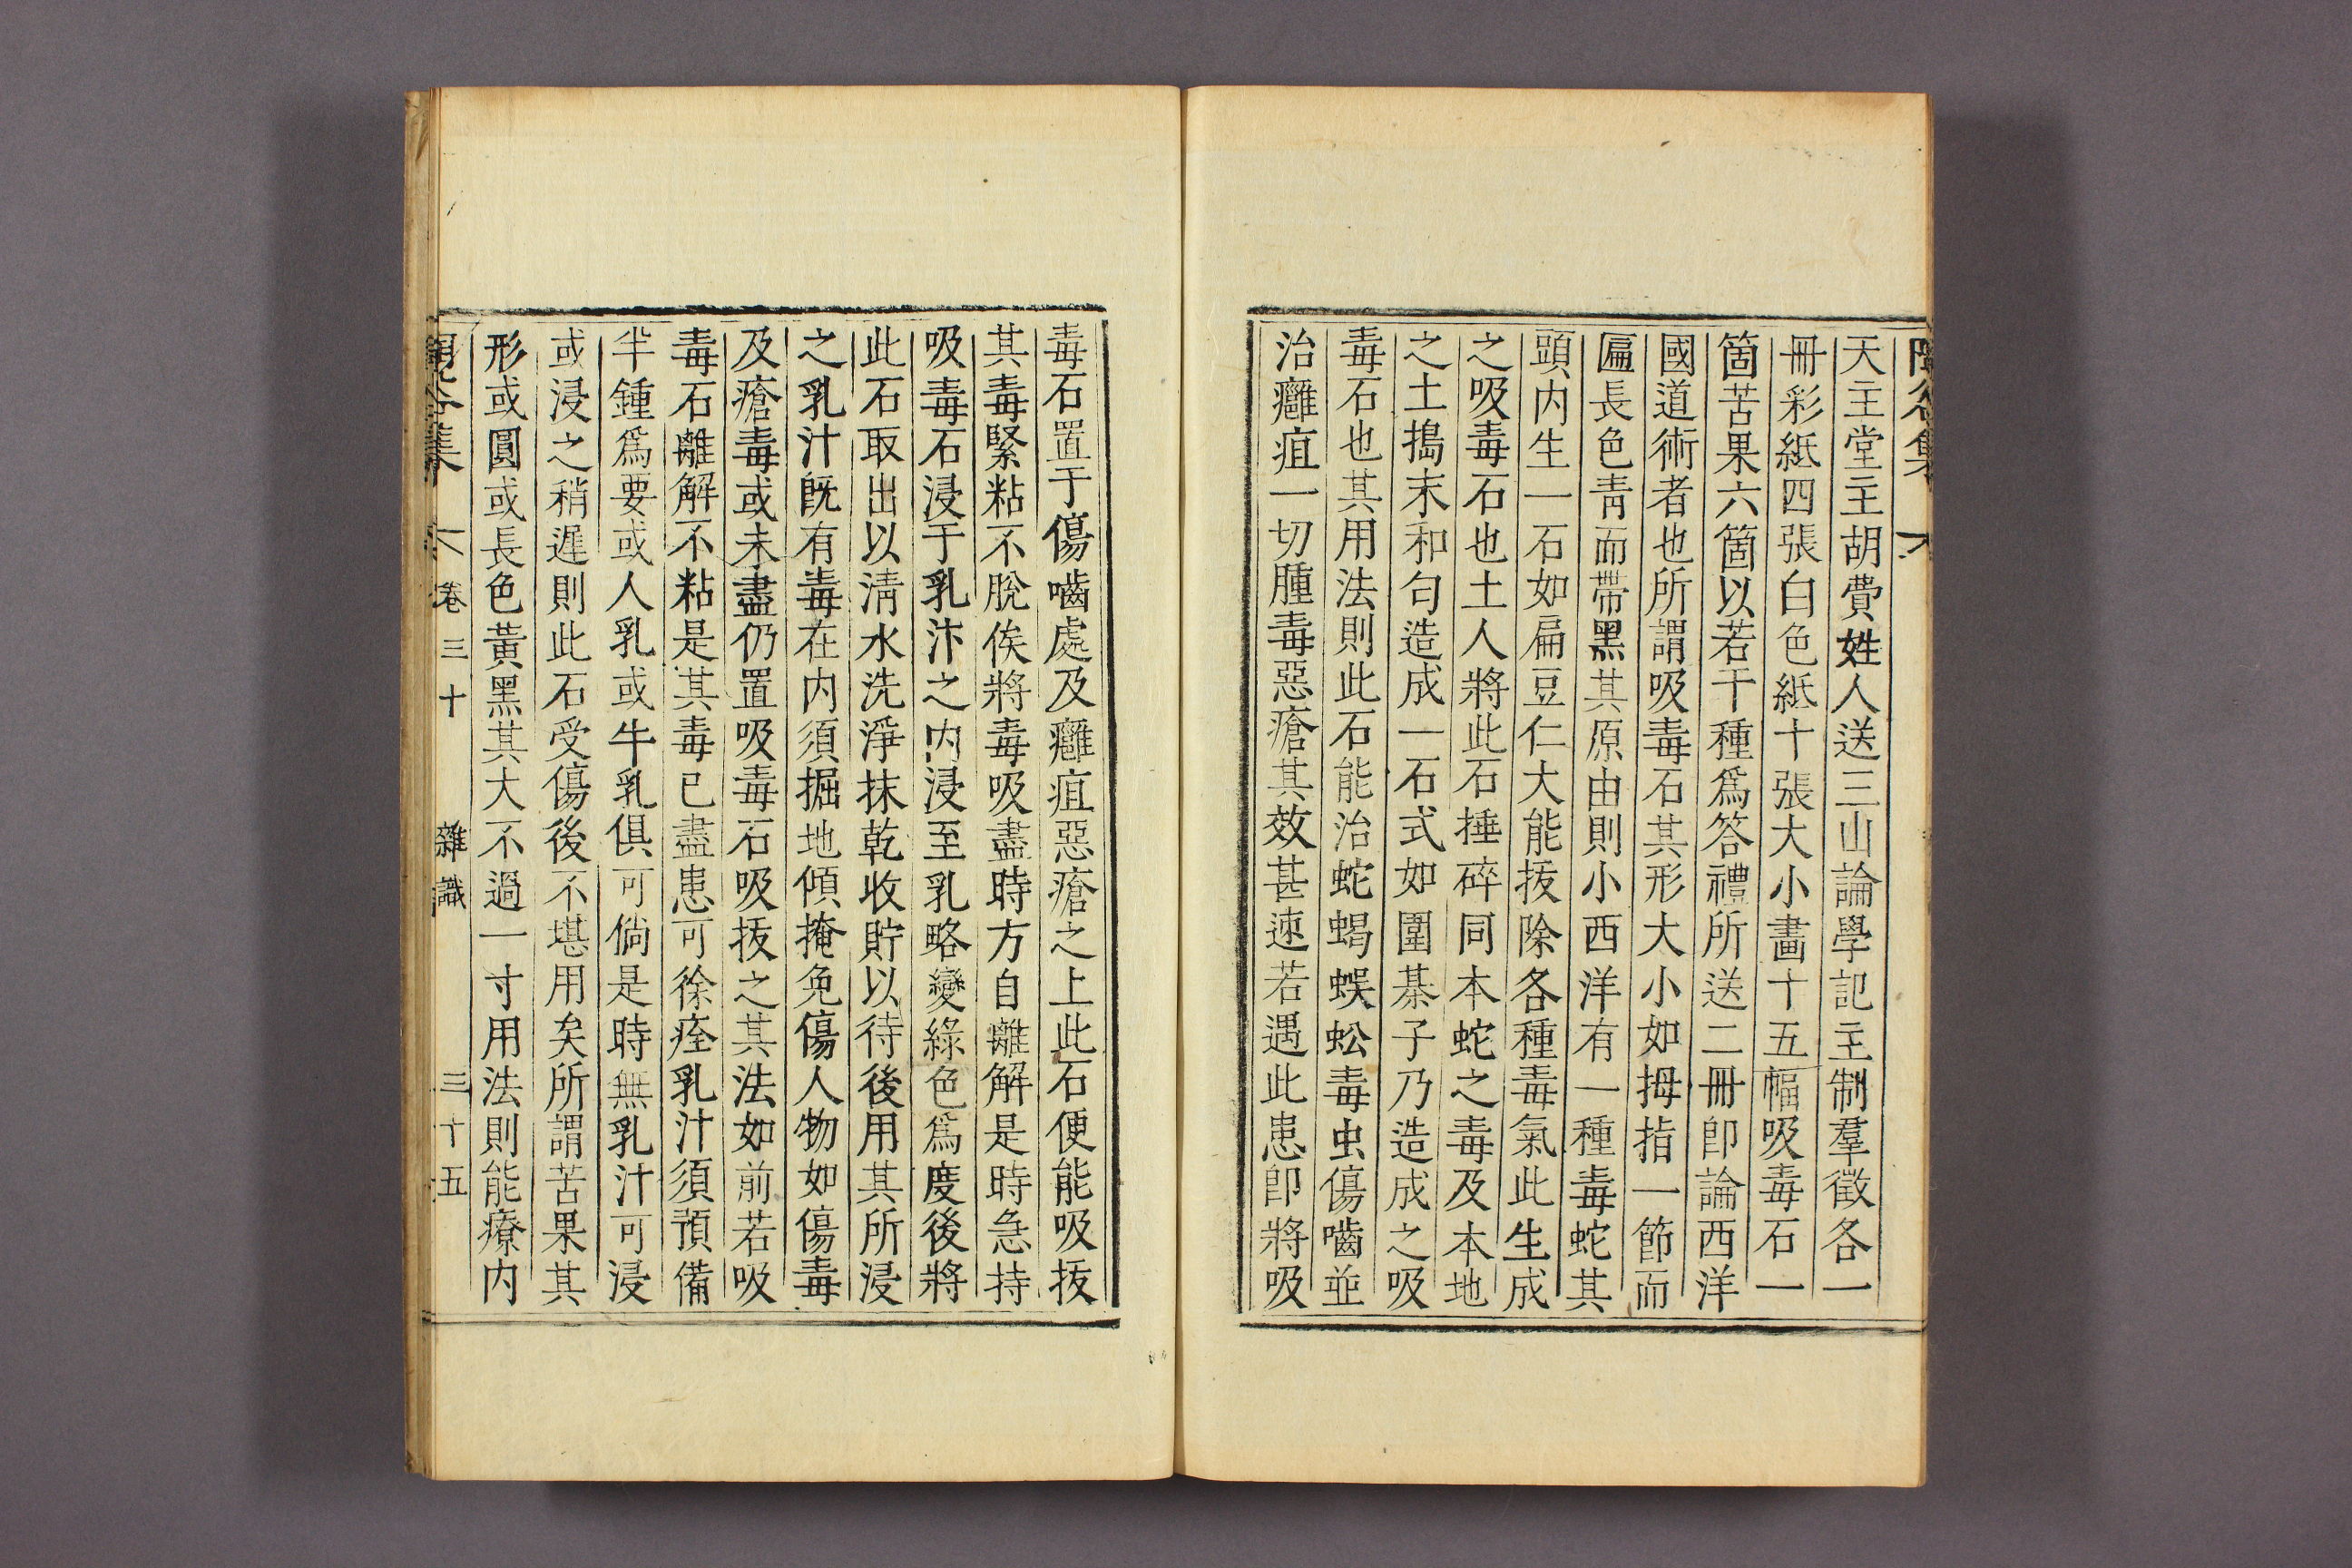 天主堂主胡費姓人送三山論學記主制羣徵各一
冊彩紙四張白色紙十張大小畵十五幅吸毒石一
箇苦果六箇以若干種爲答禮所送二冊卽論西洋
國道術者也所謂吸毒石其形大小如拇指一節而
匾長色靑而帶黑其原由則小西洋有一種毒蛇其
頭內生一石如扁豆仁大能拔除各種毒氣此生成
之吸毒石也土人將此石捶碎同本蛇之毒及本地
之土搗末和勻造成一石式如圍棊子乃造成之吸
毒石也其用法則此石能治蛇蝎蜈蚣毒虫傷嚙並
治癰疽一切腫毒惡瘡其效甚速若遇此患卽將吸
毒石置于傷嚙處及癰疽惡瘡之上此石便能吸拔
其毒緊粘不脫俟將毒吸盡時方自離解是時急持
吸毒石浸于乳汁之內浸至乳略變綠色爲度後將
此石取出以淸水洗淨抹乾收貯以待後用其所浸
之乳汁旣有毒在內須掘地傾掩免傷人物如傷毒
及瘡毒或未盡仍置吸毒石吸拔之其法如前若吸
毒石離解不粘是其毒已盡患可徐痊乳汁須預備
半鍾爲要或人乳或牛乳俱可倘是時無乳汁可浸
或浸之稍遲則此石受傷後不堪用矣所謂苦果其
形或圓或長色黃黑其大不過一寸用法則能療內
卷三十 雜識 三十五